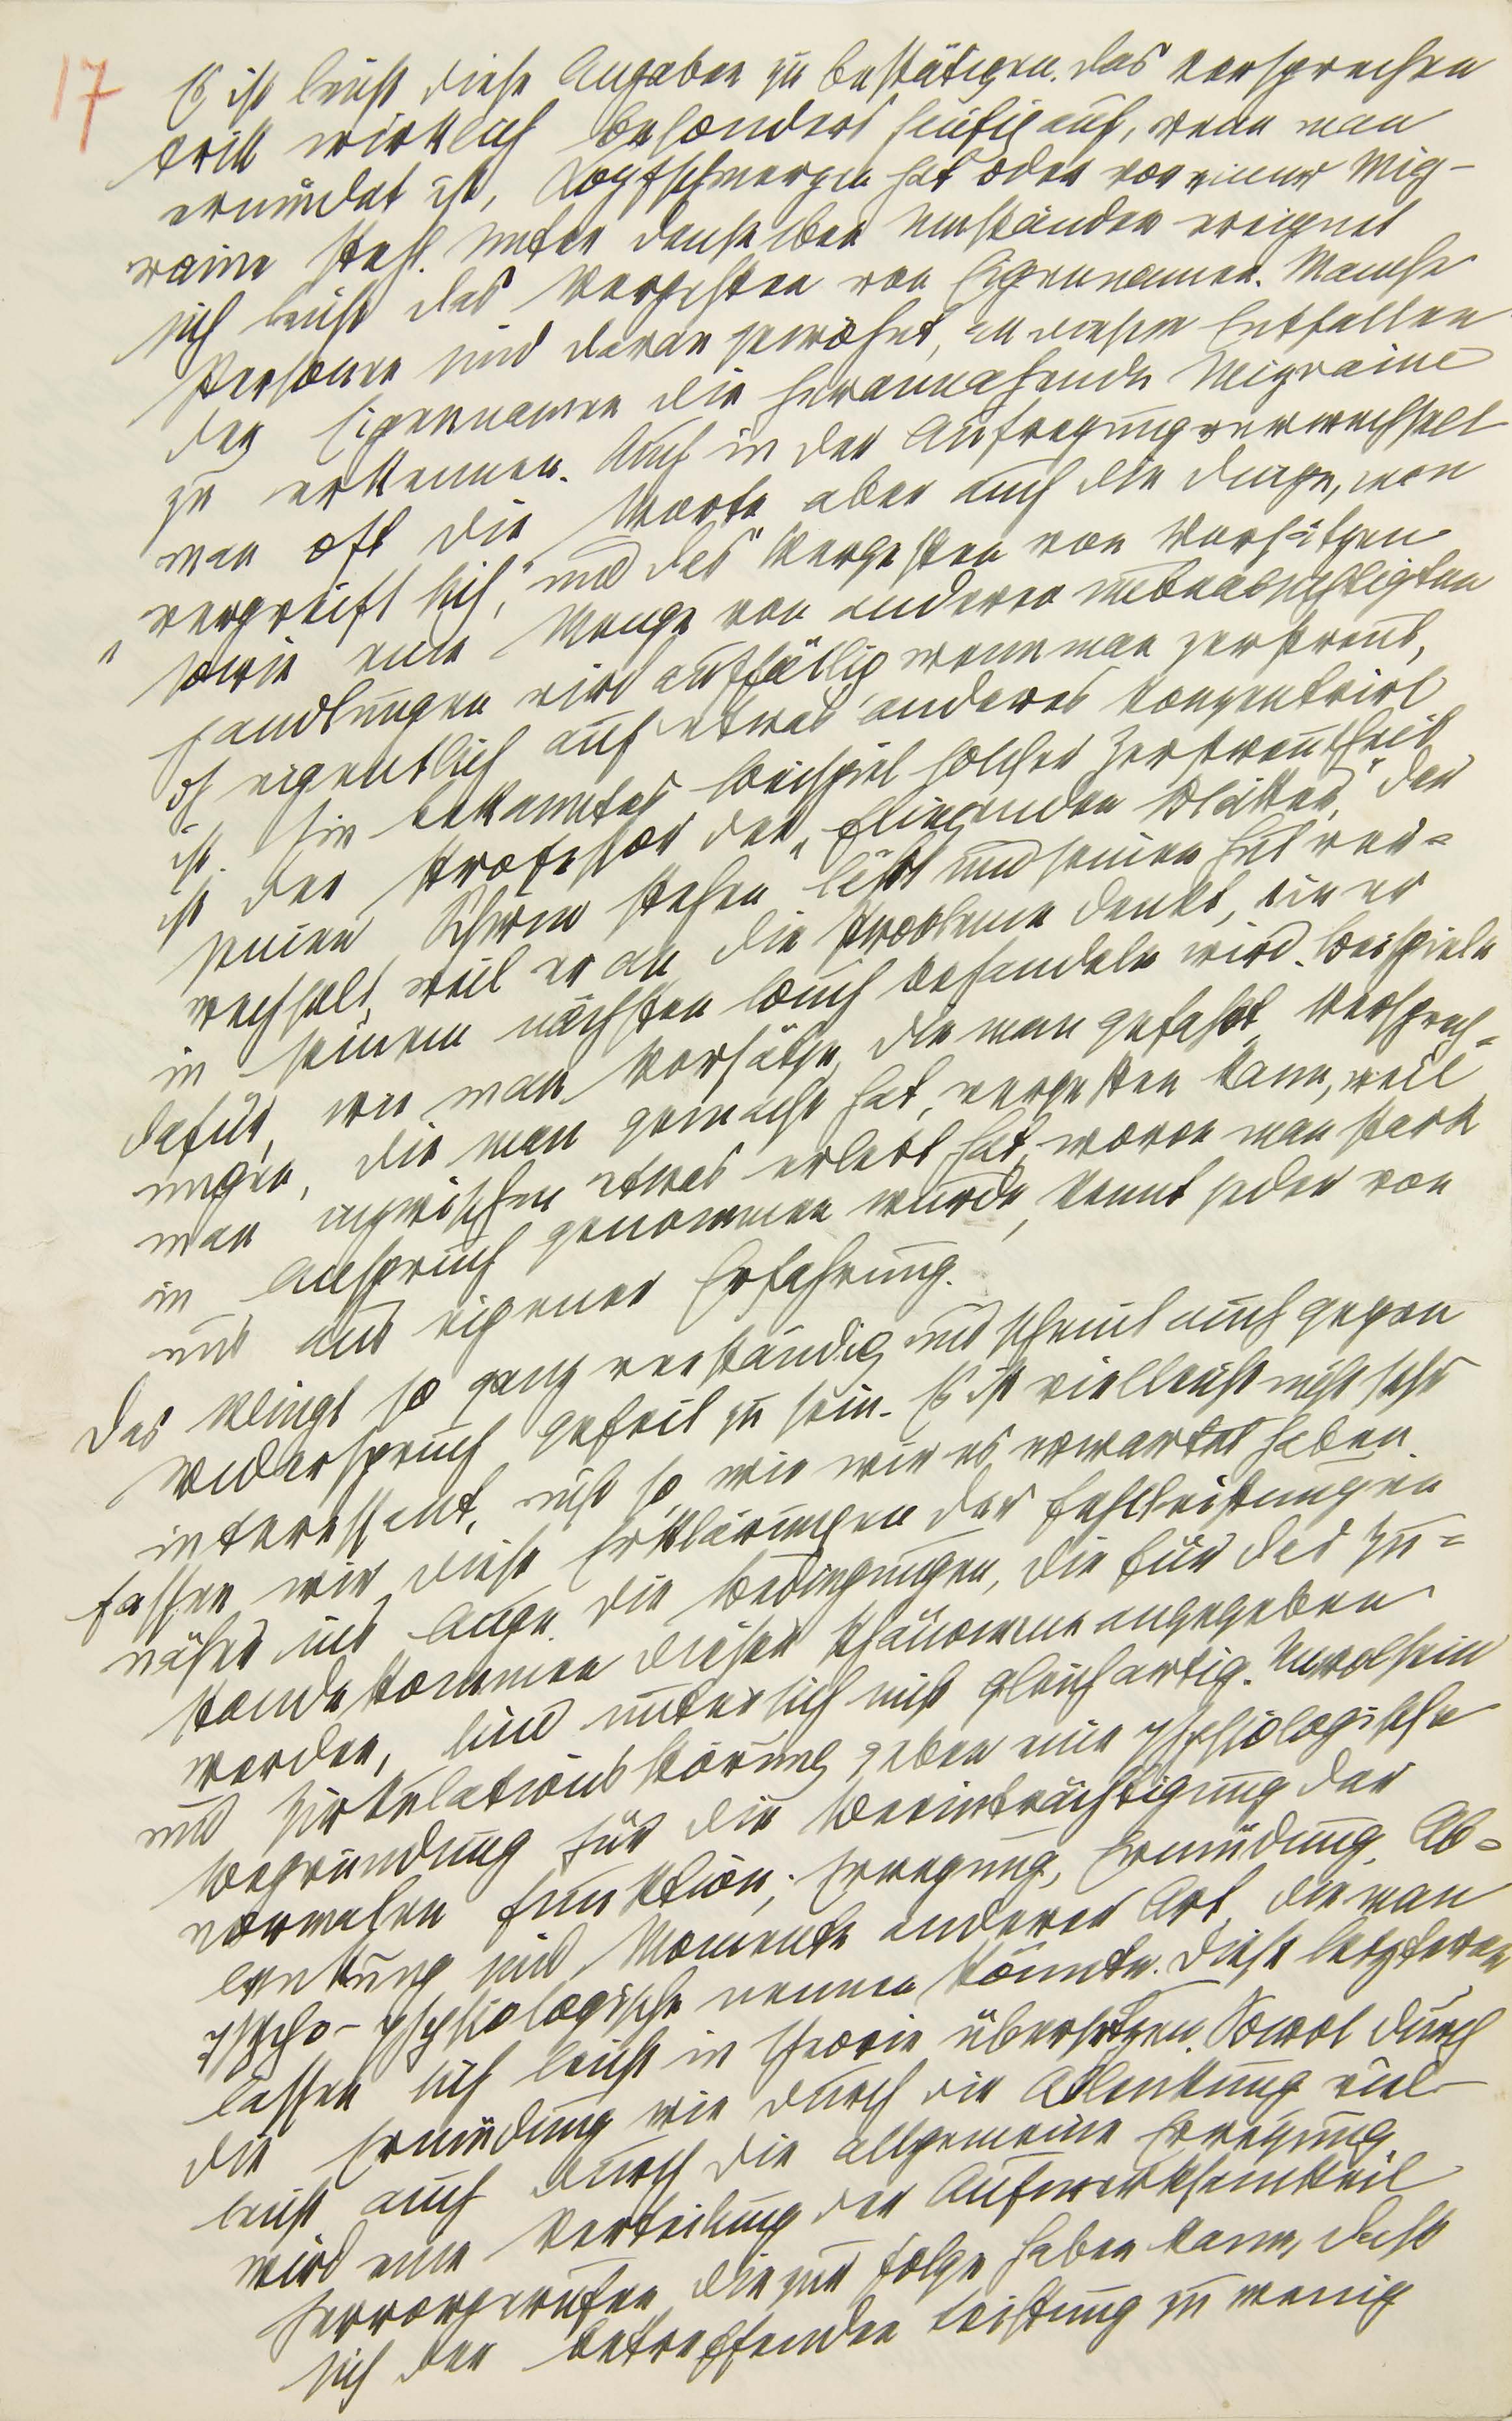 17
Es ist leicht diese Angaben zu bestätigen. Das Versprechen
tritt wirklich besonders häufig auf, wenn man
ermüdet ist, Kopfschmerzen hat oder vor einer Mig-
raine steht. Unter denselben Umständen ereignet
sich leicht das Vergessen von Eigennamen. Manche
Personen sind daran gewöhnt, an diesem Entfallen
der Eigennamen die herannahende Migraine
zu erkennen. Auch in der Aufregung verwechselt
man oft die Worte aber auch die Dinge, man
„vergreift sich," und das Vergessen von Vorsätzen
sowie eine Menge von anderen unbeabsichtigten
Handlungen wird auffällig wenn man zerstreut,
d h eigentlich auf etwas anderes konzentrirt
ist. Ein bekanntes Beispiel solcher Zerstreutheit
ist der Professor der „Fliegenden Blätter," der
seinen Schirm stehen läßt und seinen Hut ver-
wechselt, weil er an die Probleme denkt, die er
in seinem nächsten Buch behandeln wird. Beispiele
dafür, wie man Vorsätze, die man gefaßt, Versprech-
ungen, die man gemacht hat, vergessen kann, weil
man inzwischen etwas erlebt hat, wovon man stark
in Anspruch genommen wurde, kennt jeder von
uns aus eigener Erfahrung.
Das klingt so ganz verständig und scheint auch gegen
Widerspruch gefeit zu sein. Es ist vielleicht nicht sehr
interessant, nicht so wie wir es erwartet haben.
Fassen wir diese Erklärungen der Fehlleistungen
näher ins Auge. Die Bedingungen, die für das Zu-
standekommen dieser Phänomene angegeben
werden, sind unter sich nicht gleichartig. Unwolsein
und Zirkulationsstörung geben eine physiologische
Begründung für die Beeinträchtigung der
normalen Funktion; Erregung, Ermüdung, Ab-
lenkung sind Momente anderer Art, die man
psycho-physiologische nennen könnte. Diese letzteren
lassen sich leicht in Theorie übersetzen. Sowol durch
die Ermüdung wie durch die Ablenkung viel-
leicht auch durch die allgemeine Erregung
wird eine Verteilung der Aufmerksamkeit
hervorgerufen, die zur Folge haben kann, daß
sich der betreffenden Leistung zu wenig